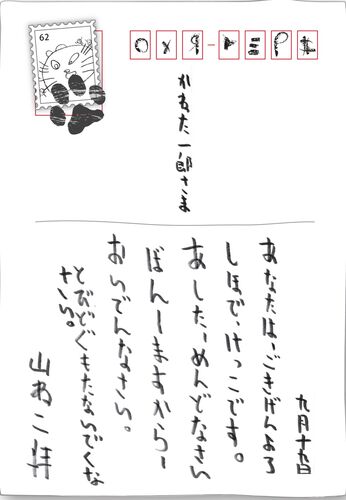 62
かねた一郎さま
九月十九日
あなたは、ごきげんよろ
しほで、けっこです。
あした、めんどなさい
ばんしますから、
おいでんなさい。
とびどぐもたないでくな
さい。
山ねこ拝